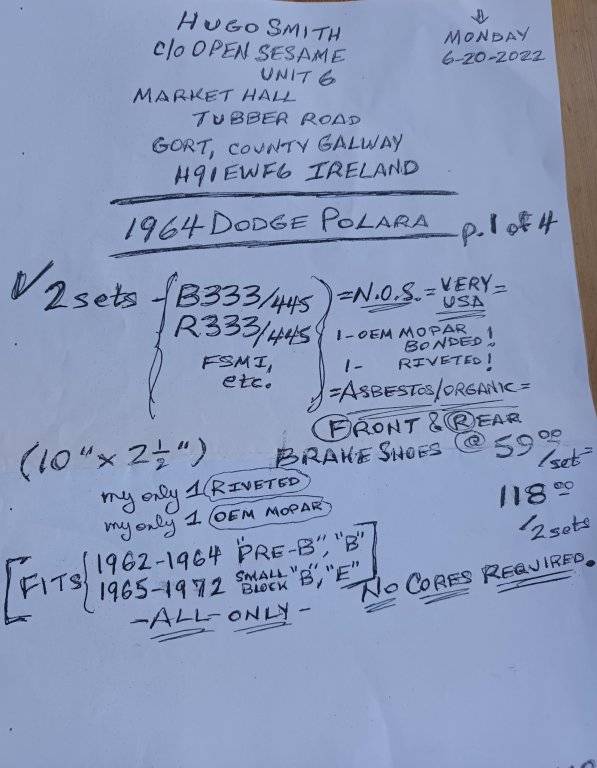 HUGO SMITH
c/o OPEN SESAME
UNIT 6
MARKET HALL
TUBBER ROAD
GORT, COUNTY GALWAY
H91EWF6 IRELAND
MONDAY
6-20-2022
1964 DODGE POLARA p. 1 of 4
2 sets - { B333/445 } = N.O.S. = VERY =
USA
R333/445 1-OEM MOPAR
BONDED!
FSMI, 1- RIVETED!
etc. = ASBESTOS/ORGANIC =
FRONT & REAR
(10" x 2 1/2") BRAKE SHOES @ 59.00
/set=
my only 1 RIVETED 118.00
my only 1 OEM MOPAR /2 sets
[FITS { 1962-1964 "PRE-B", "B"
1965-1972 SMALL BLOCK "B", "E" ]
NO CORES REQUIRED.
-ALL- ONLY-